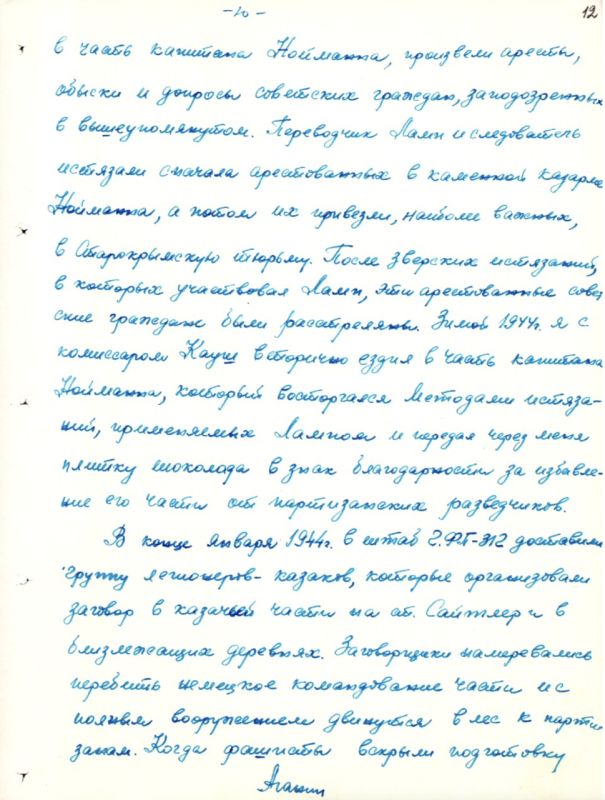 -10-
12
в часть капитана Нойманна, произвели аресты,
обыски и допросы советских граждан, заподозренных
в вышеупомянутом. Переводчик Ламп и следователь
истязали сначала арестованных в каменной казарме
Нойманна, а потом их привезли, наиболее важных,
в Старокрымскую тюрьму. После зверских истязаний,
в которых участвовал Ламп, эти арестованные совет
ские граждане были расстреляны. Зимой 1944г. я с
комиссаром Кауш вторично ездил в часть капитана
Нойманна, который восторгался методами истяза-
ний, применяемых Лампом и передал через меня
плитку шоколада в знак благодарности за избавле-
ние его части от партизанских разведчиков.
В конце января 1944г. в штаб ГФП-312 доставили
группу легионеров-казаков, которые организовали
заговор в казачьей части на ст. Сайтлер и в
близлежащих деревнях. Заговорщики намеревались
перебить немецкое командование части и с
полным вооружением двинуться в лес к парти
занам. Когда фашисты вскрыли подготовку